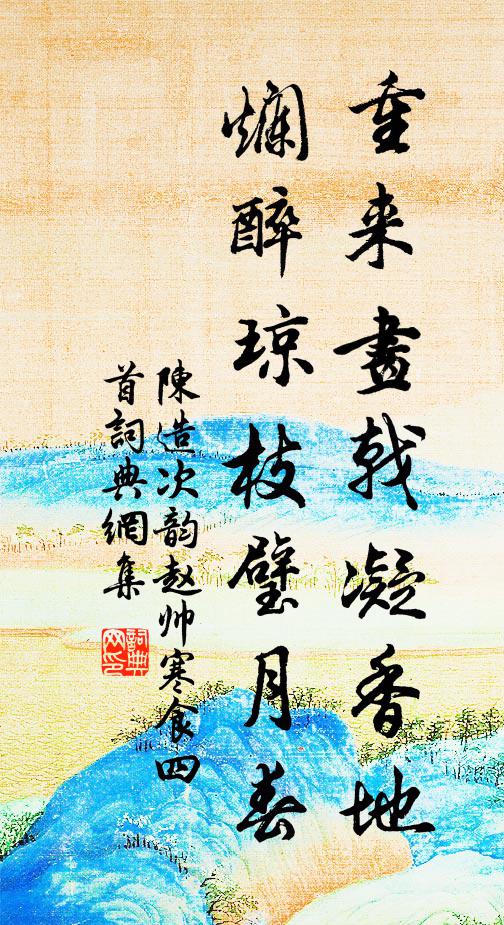 重来畫戟凝香地
爛醉琼枝璧月春
陳造次韵赵帅寒食四
首詞典網集
詞典
网印